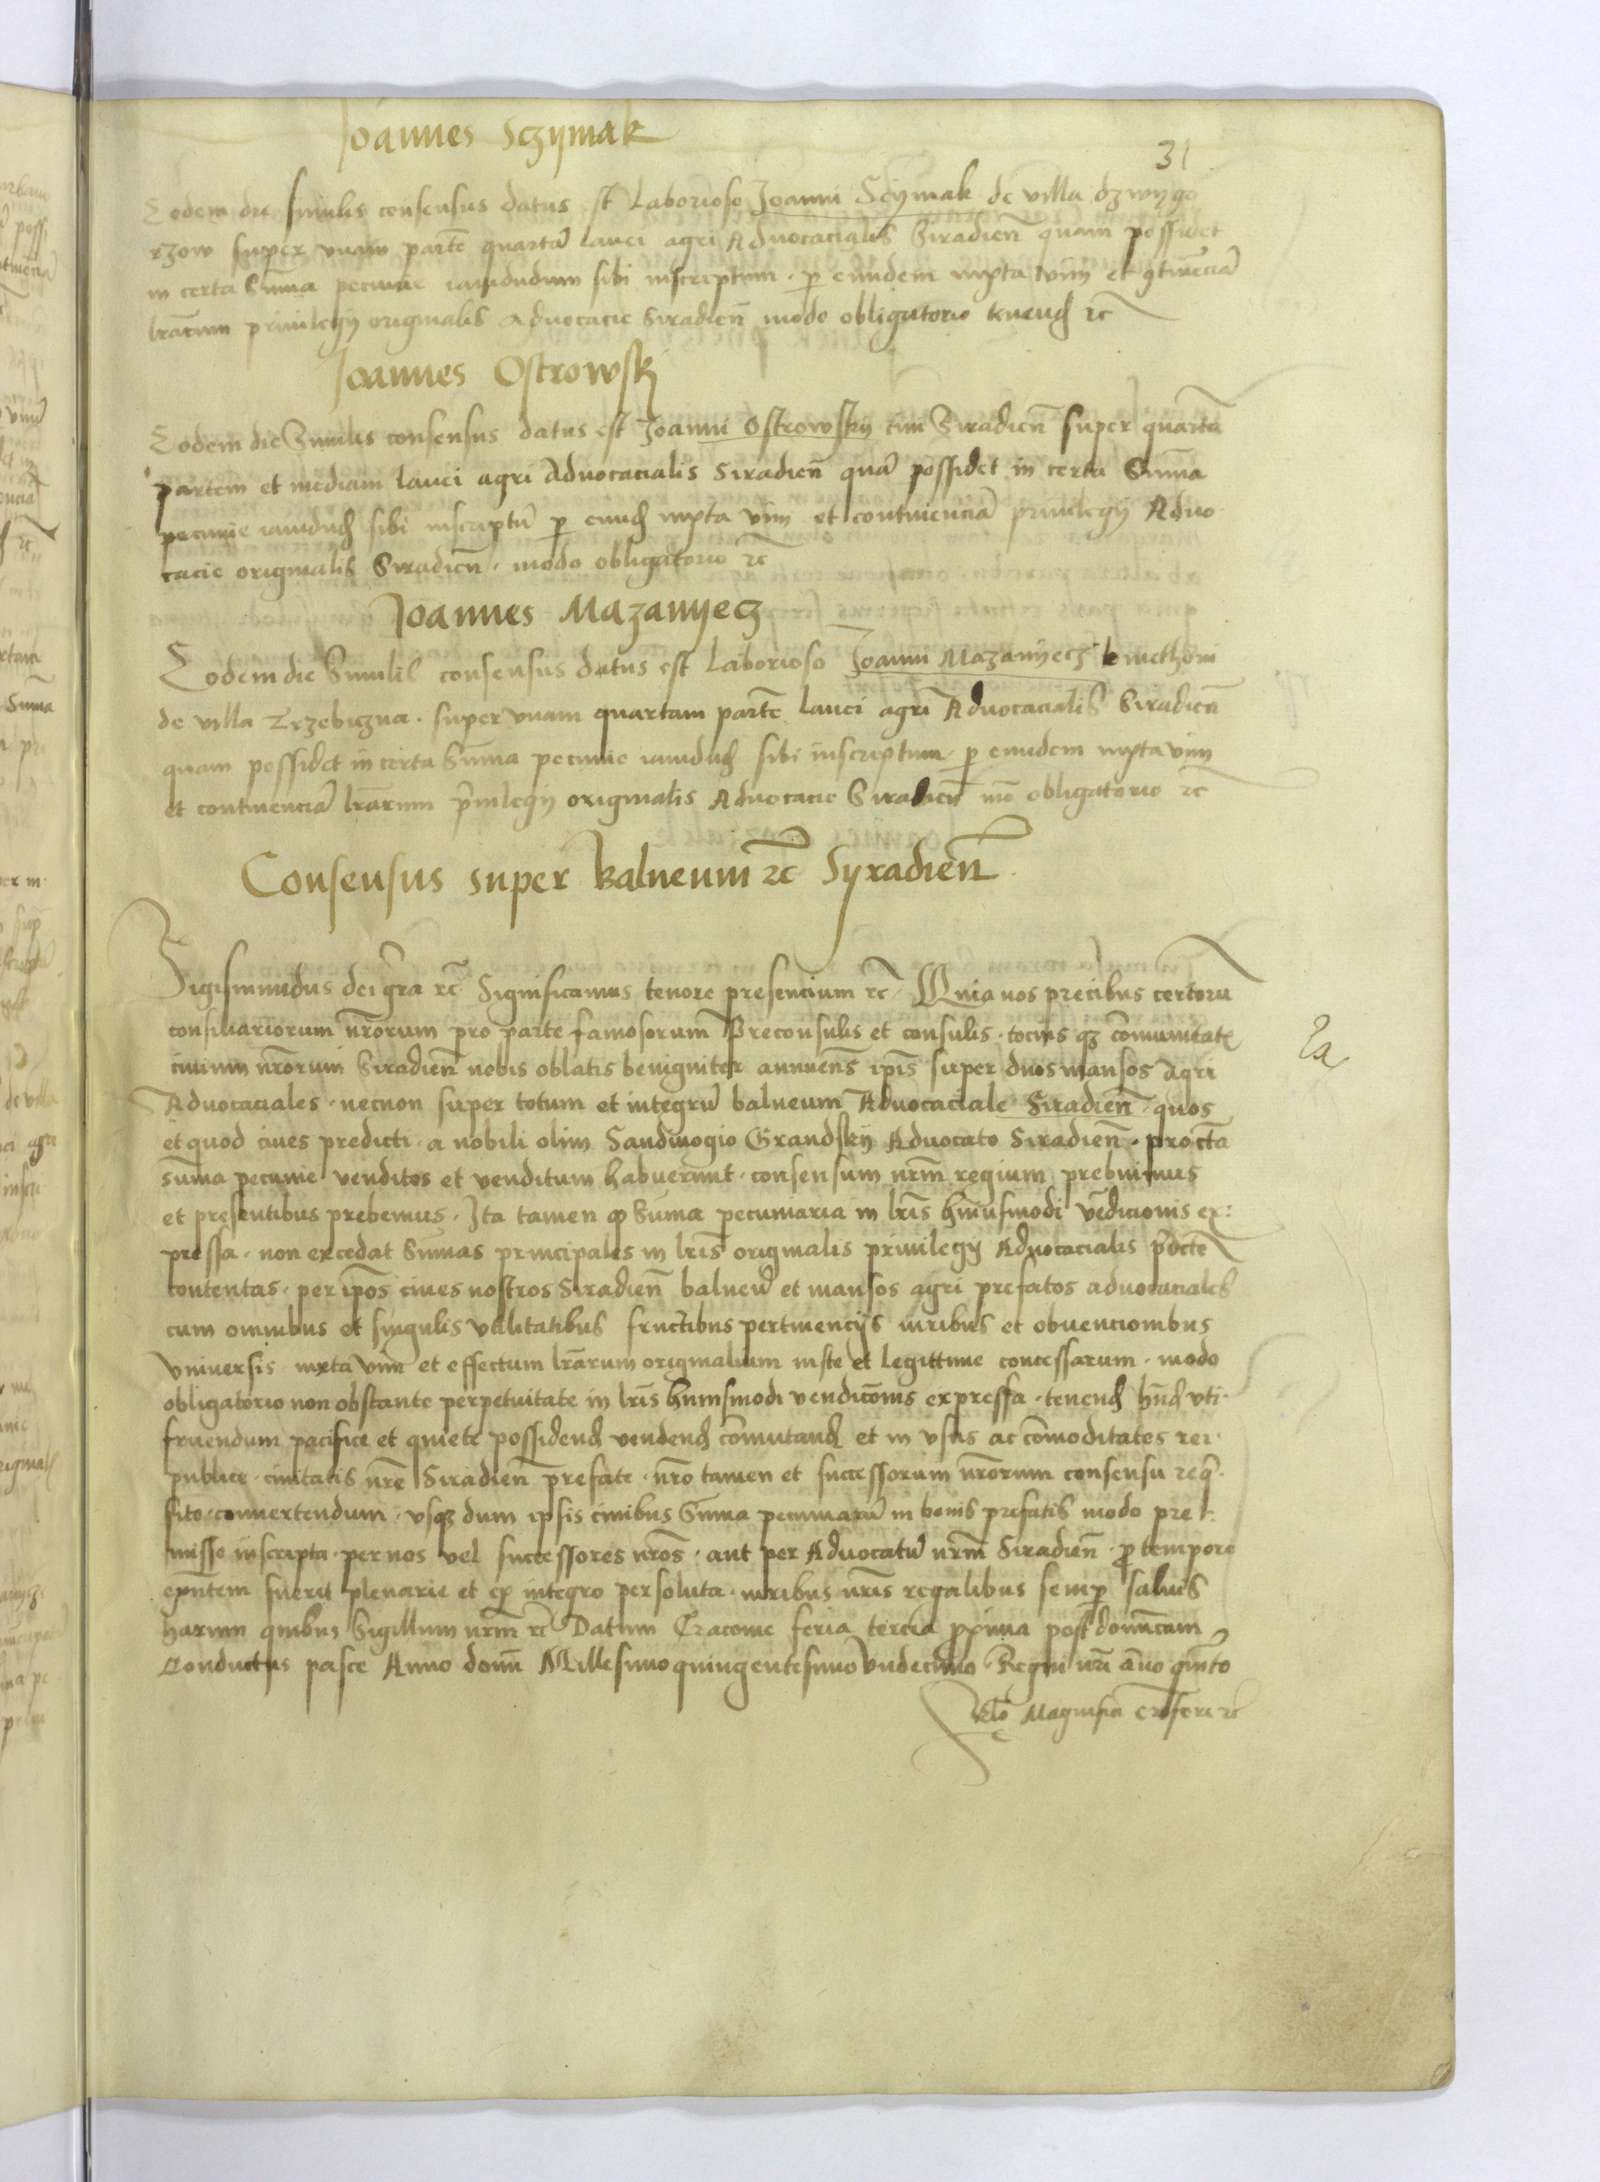 Joannes Sczymak
31
Eodem die similis consensus datus est Laborioso Joanni Sczymak de villa dzwygo
rzow super vnam partē quartā lanei agri Advocacialis Siradieñ quam possidet
in certa Sūma pecunie iamdudum sibi inscriptam · ꝑ eundem iuxta vim et ꝯtinēciā
lrārum priuilegij originalis Aduocacie Siradieñ modo obligatorio tenend ꝛc
Joannes Ostrowskj
Eodem die Similis consensus datus est Joanni Ostrowskij ciui Siradieñ super quartā
partem et mediam lanei agri Advocacialis Siradieñ quā possidet in certa Sūma
pecunie iamdud sibi inscriptā ꝑ eund iuxta vim et continenciā priuilegij Aduo
cacie originalis Siradieñ · modo obligatorio ꝛc
Joannes Mazanyecz
Eodem die Similis consensus datus est Laborioso Joanni Mazanyecz kmethoni
de villa Trzebiczna · super vnam quartam partē lanei agri Advocacialis Siradieñ
quam possidet in certa Sūma pecunie iamdud sibi inscriptam · ꝑ eundem iuxta vim
et continenciā lrārum p̄uilegij originalis Advocacie Siradieñ mō obligatorio ꝛc
Consensus super balneum ꝛc Syradieñ
Sigismundus dei grā ꝛc Significamus tenore presencium ꝛc · Quia nos precibus certorū
consiliariorum nr̄orum pro parte famosorum Preconsulis et consulis · tocius qȝ cōmunitatꝭ
ciuium nr̄orum Siradieñ nobis oblatis benigniter annuens ip̄is super duos mansos agri
Advocaciales · necnon super totum et integrū balneum Advocaciale Siradieñ · quos
et quod ciues predicti · a nobili olim Sandiuogio Grandskij Advocato Siradieñ · pro ctā
sūma pecunie venditos et venditum habuerunt · consensum nr̄m regium prebuimus
et presentibus prebemus · Ita tamen ꝙ Sūma pecuniaria in lr̄is hm̄usmodi vēdicionis ex:
pressa · non excedat Sūmas principales in lr̄is originalis priuilegij Advocacialis p̄dcte
contentas · per ip̄os ciues nostros Siradieñ balneū et mansos agri prefatos advocaciales
cum omnibus et singulis vtilitatibus fructibus pertinencijs iuribus et obuencionibus
vniversis iuxta vim et effectum lrārum originalium iuste et legittime concessarum · modo
obligatorio non obstante perpetuitate in lr̄is huiusmodi vendicōnis expressa · tenend hn̄d vti·
fruendum pacifice et quiete possidend vendend cōmutand et in vsus ac cōmoditates rei·
publice · ciuitatis nr̄e Siradieñ prefate · nr̄o tamen et successorum nr̄orum consensu req·
sito · conuertendum · vsqȝ dum ipsis ciuibus Sūma pecuniariā in bonis prefatis modo pre
misso inscripta · per nos vel successores nr̄os · aut per Advocatū nr̄m Siradieñ · ꝓ tempore
exn̄tem fuerit plenarie et ex integro persoluta · iuribus nr̄is regalibus semꝑ saluis
harum quibus Sigillum nr̄m ꝛc Datum Cracouie feria tercia proxima post domīcam
Conductus pasce Anno domī Millesimo quingentesimo vndecimo · Regni nr̄i āno quīto
Rlo Magnifici